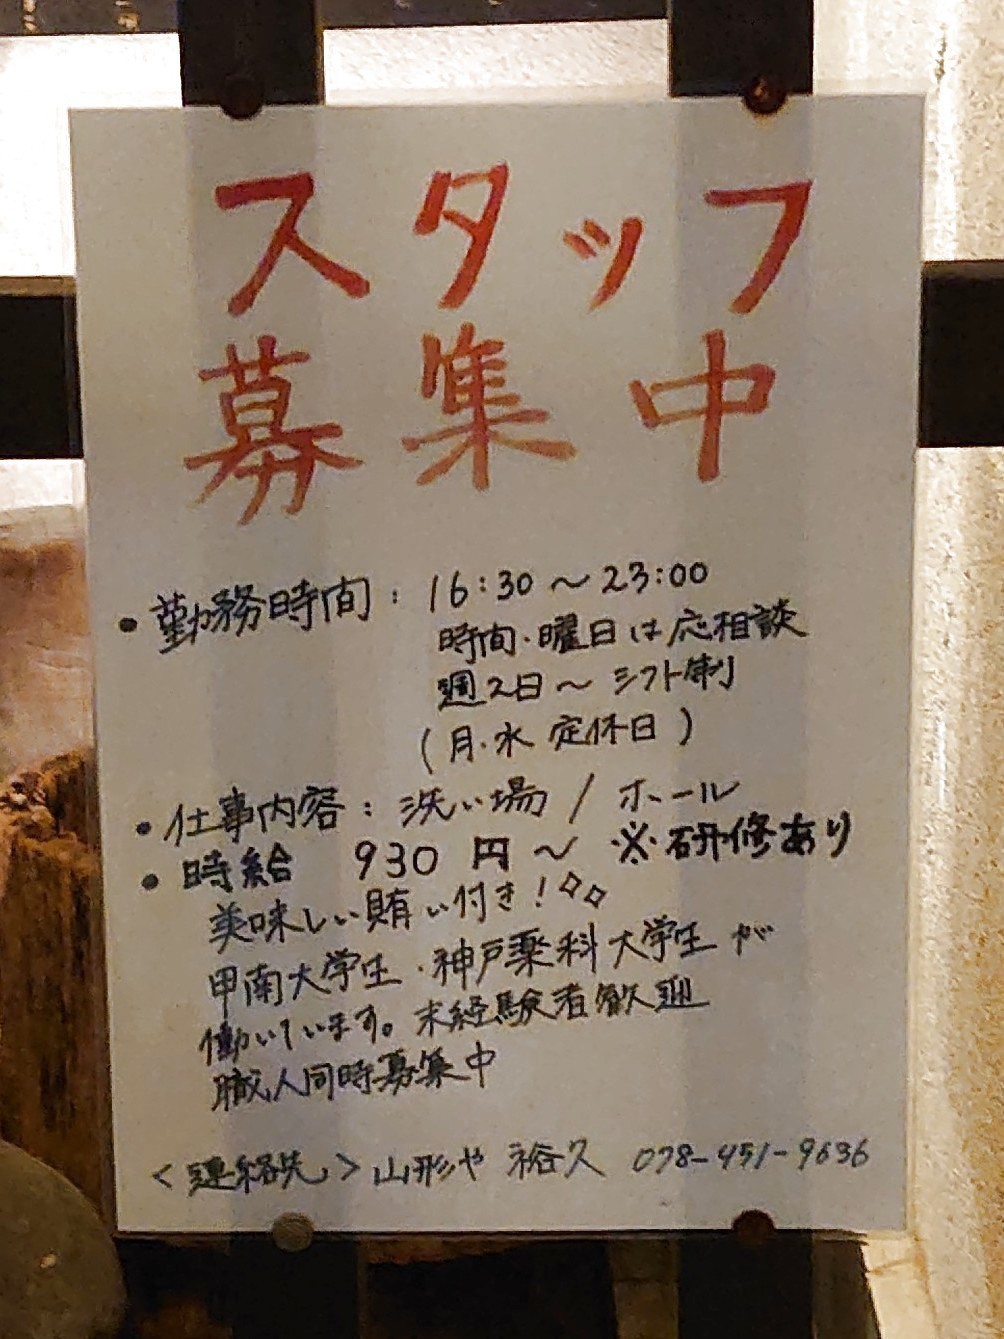 スタッフ
募集中
• 勤務時間 : 16:30 〜 23:00
時間・曜日は応相談
週2日〜 シフト制
(月・水 定休日)
• 仕事内容 : 洗い場 / ホール
• 時給 930 円 〜 ※研修あり
美味しい賄い付き!
甲南大学生・神戸薬科大学生が
働いています。未経験者歓迎
職人同時募集中
<連絡先> 山形や 裕久 078-451-9636